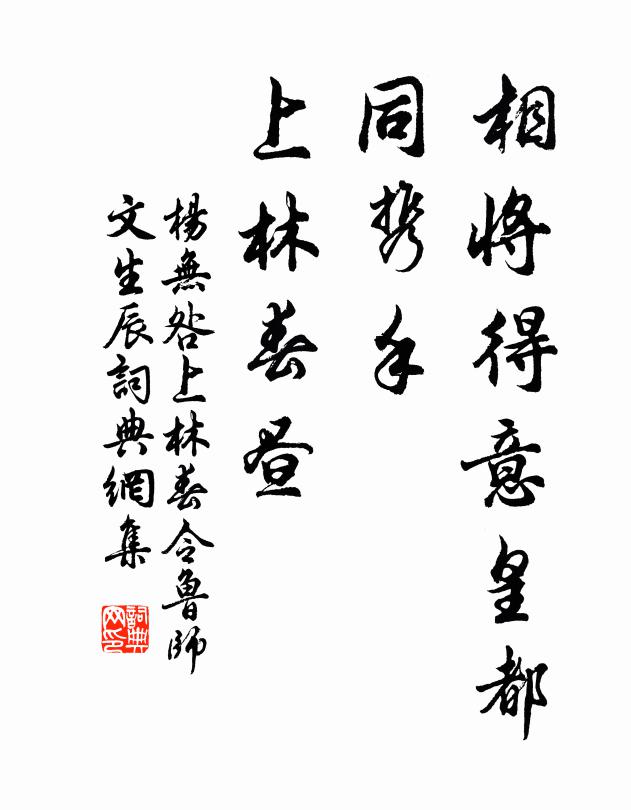 相将得意皇都
同携手
上林春昼
楊無咎上林春令魯師
文生辰詞典網集
詞典网印